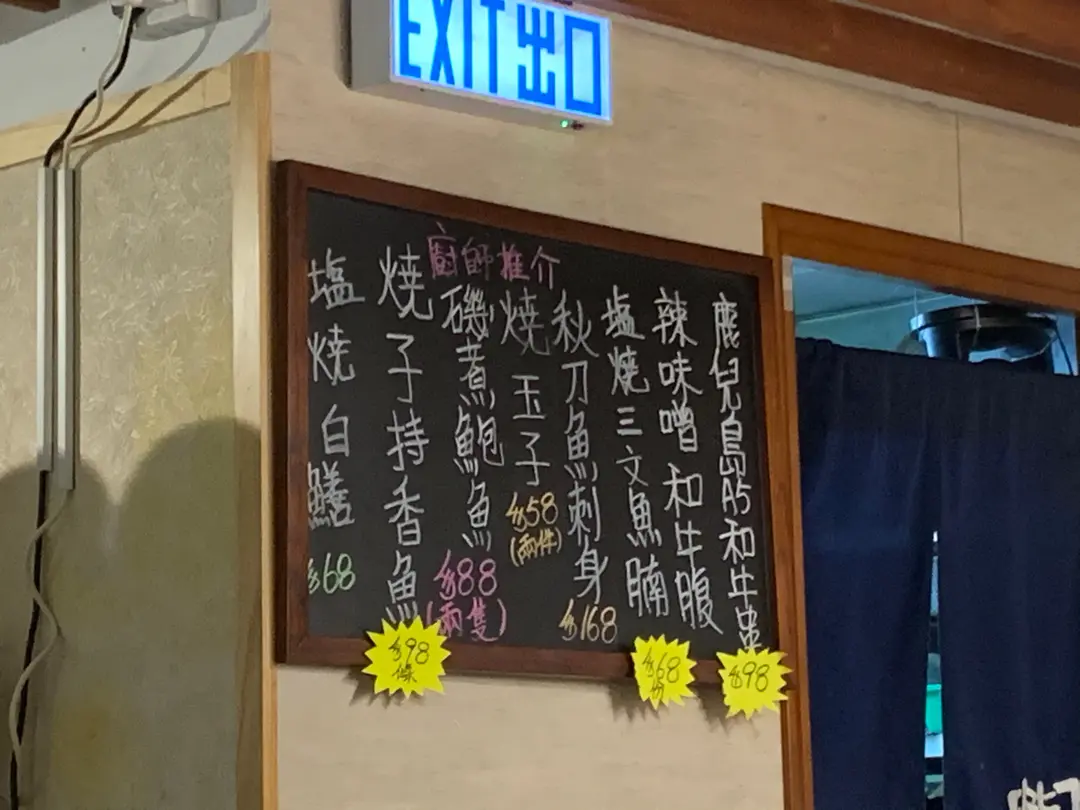 EXIT出口
廚師推介
鹿兒島A5和牛串
$98
辣味噌和牛腹
塩燒三文魚腩
$68
份
秋刀魚刺身
$168
燒玉子
$58
(兩件)
磯煮鮑魚
$88
(兩隻)
燒子持香魚
$98
條
塩燒白鱔
$68